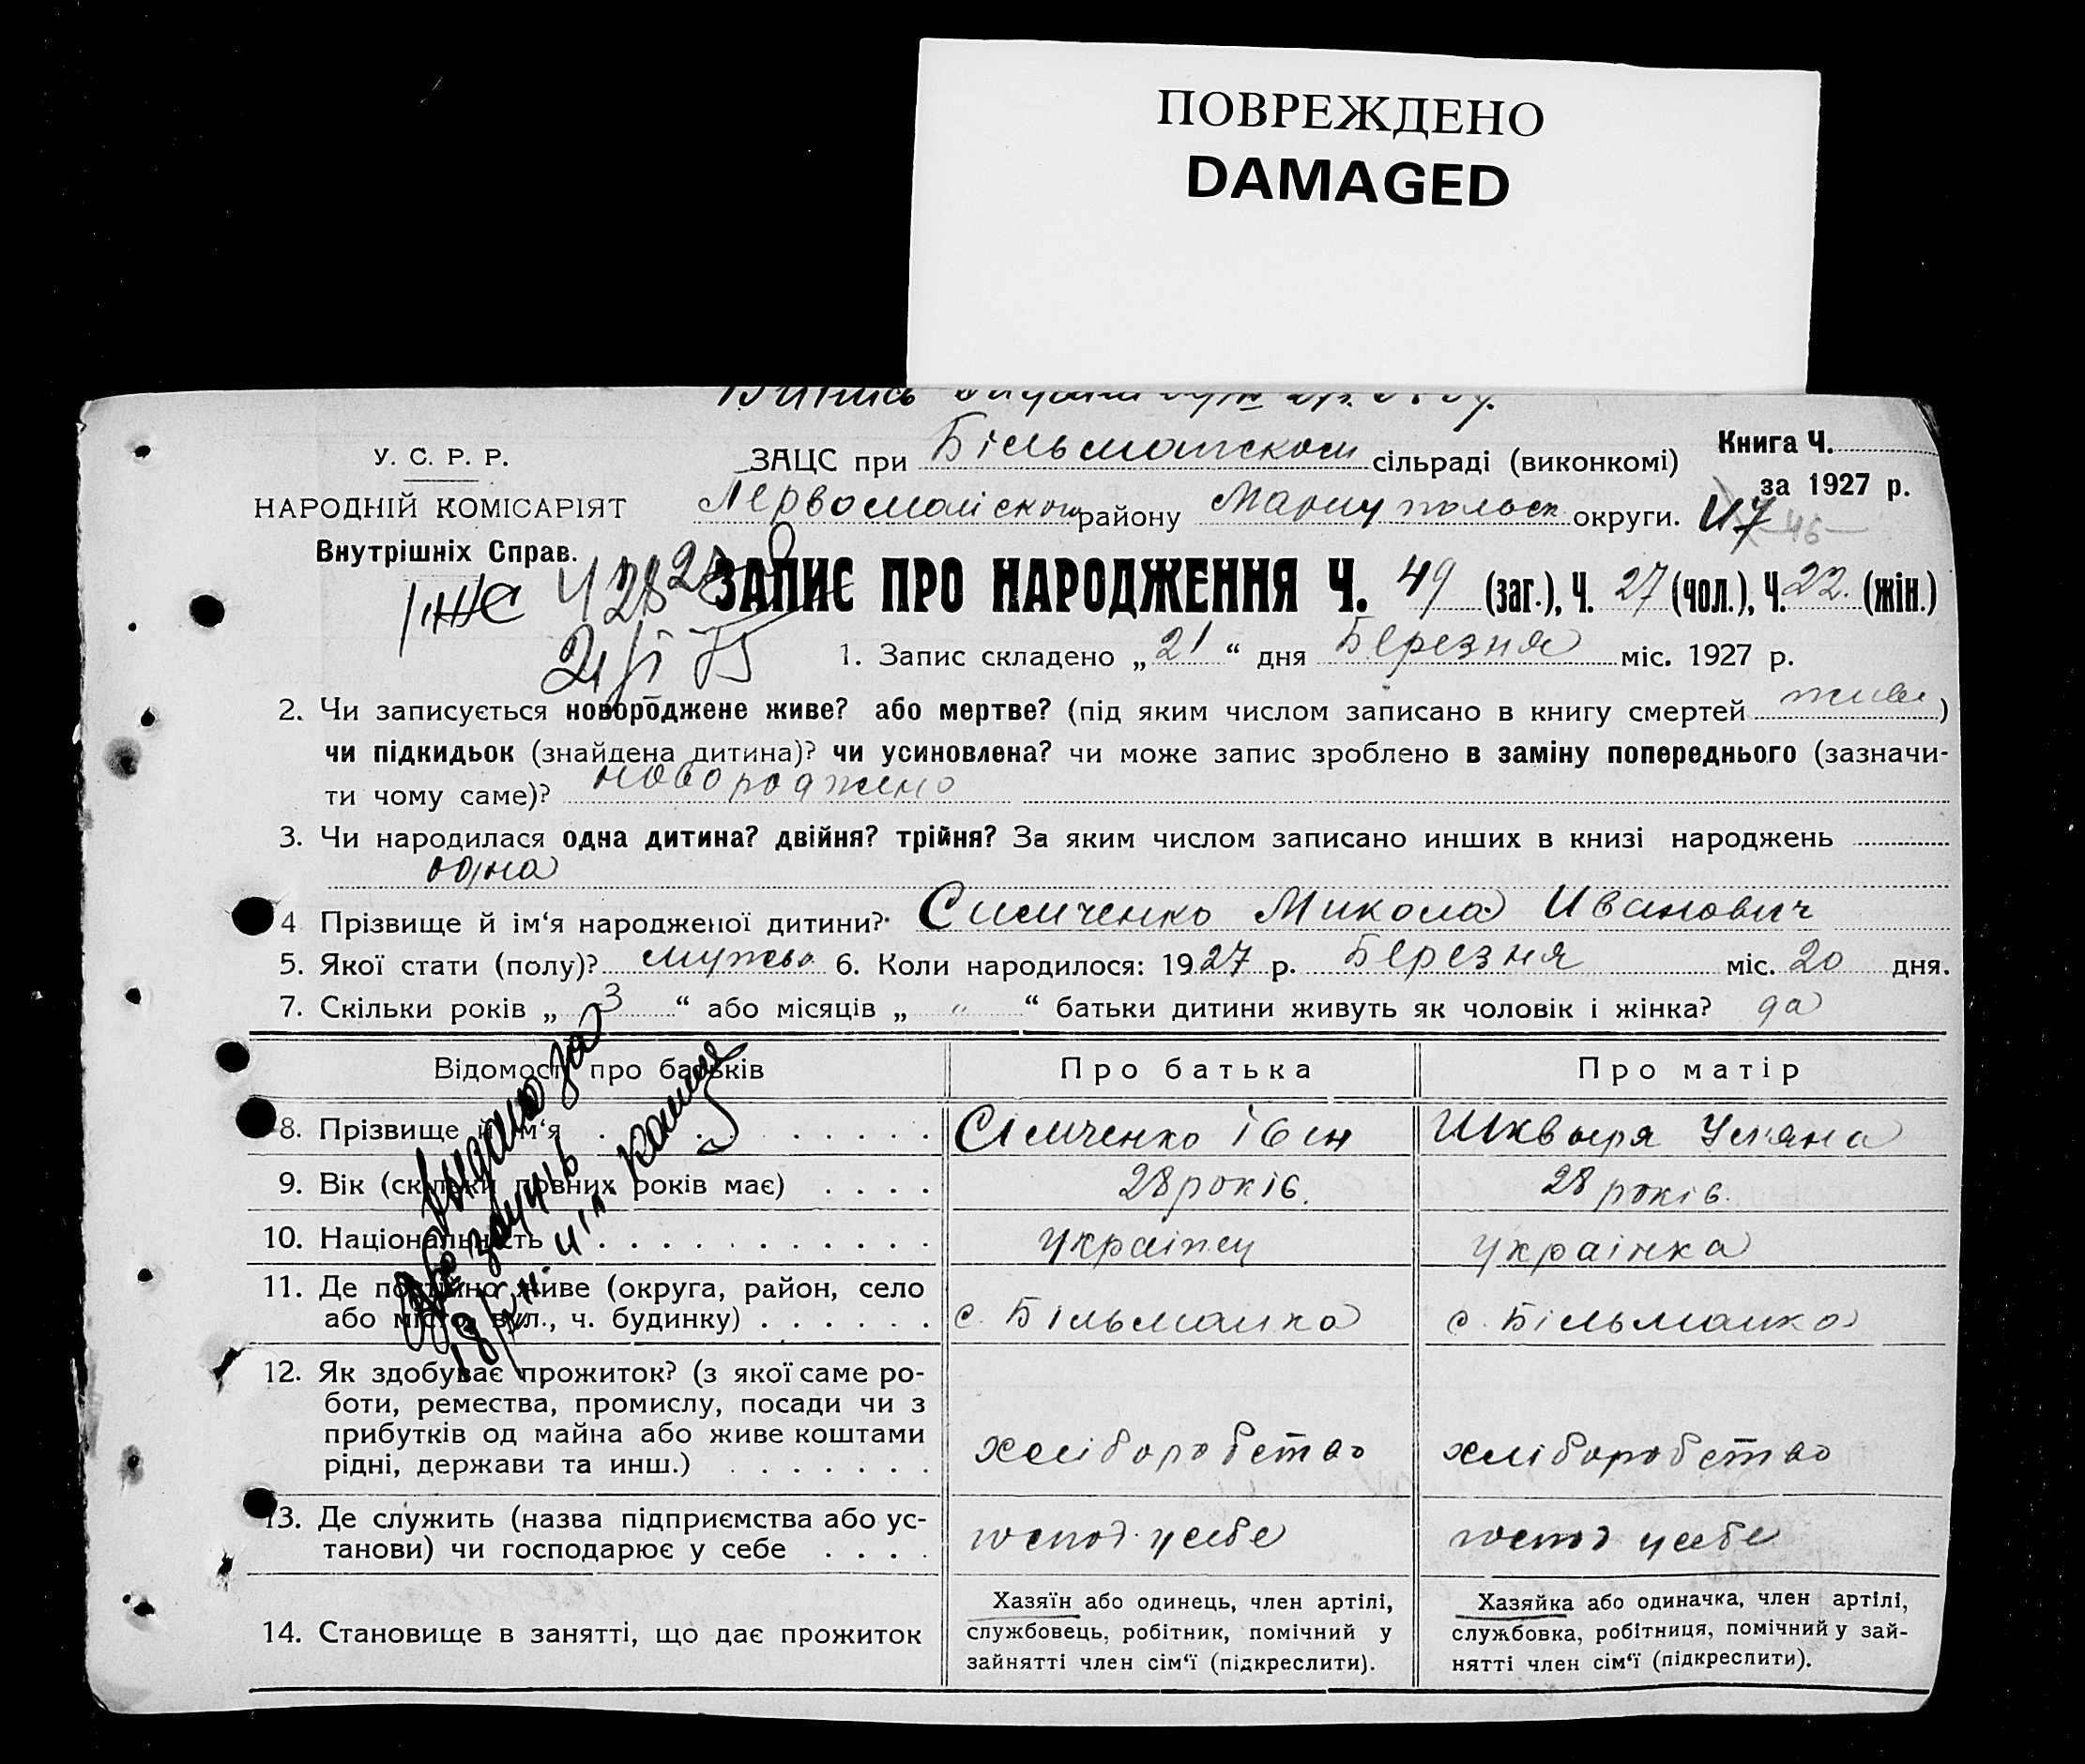 ПОВРЕЖДЕНО
DAMAGED
У. С. Р. Р.
НАРОДНІЙ КОМІСАРІЯТ
Внутрішніх Справ.
ЗАЦС при Більманском сільраді (виконкомі)
Книга Ч.
за 1927 р.
Первомайском району Мариупольск округи.
ЗАПИС ПРО НАРОДЖЕННЯ Ч. 49 (заг.), Ч. 27 (чол.), Ч. 22. (жін.)
1. Запис складено „21“ дня Березня міс. 1927 р.
2. Чи записується новороджене живе? або мертве? (під яким числом записано в книгу смертей живе)
чи підкидьок (знайдена дитина)? чи усиновлена? чи може запис зроблено в заміну попереднього (зазначи-
ти чому саме)? новороджено
3. Чи народилася одна дитина? двійня? трійня? За яким числом записано инших в книзі народжень
одна
4 Прізвище й ім‘я народженої дитини? Симченко Микола Иванович
5. Якої стати (полу)? мужсь. 6. Коли народилося: 1927 р. Березня міс. 20 дня.
7. Скільки років „3“ або місяців „ “ батьки дитини живуть як чоловік і жінка? да
Відомості про батьків
Про батька
Про матір
8. Прізвище й ім‘я
Сімченко Іван
Шквыря Уляна
9. Вік (скільки повних років має)
28 років.
28 років.
10. Національність
Українец
Українка
11. Де постійно живе (округа, район, село
або місто, вул., ч. будинку)
с. Більманка
с. Більманка
12. Як здобуває прожиток? (з якої саме ро-
боти, ремества, промислу, посади чи з
прибутків од майна або живе коштами
рідні, держави та инш.)
хліборобство
хліборобство
13. Де служить (назва підприємства або ус-
танови) чи господарює у себе
господ. у себе
господ у себе
14. Становище в занятті, що дає прожиток
Хазяїн або одинець, член артілі,
службовець, робітник, помічний у
зайнятті член сім‘ї (підкреслити).
Хазяйка або одиначка, член артілі,
службовка, робітниця, помічний у зай-
нятті член сім‘ї (підкреслити).